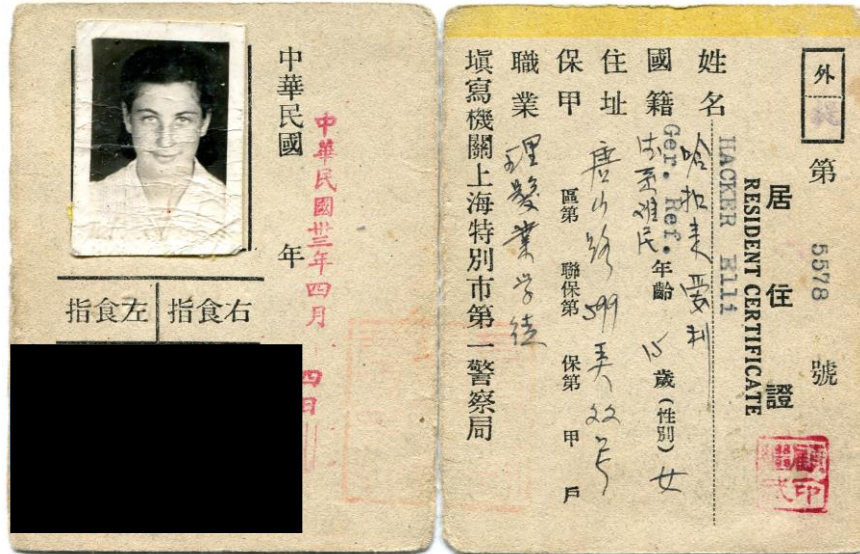 外
第 5578 號
居住證
RESIDENT CERTIFICATE
HACKER Elli
姓名 哈扣 利
國籍 Ger. Ref. 難民 年齡 15 歲(性別)女
住址 唐山路 599 弄
保甲 區第 聯保第 保第 甲 戶
職業 理髮業学徒
塡寫機關上海特別市第一警察局
中華民國 年
中華民國卅三年四月 四日
右食指
左食指